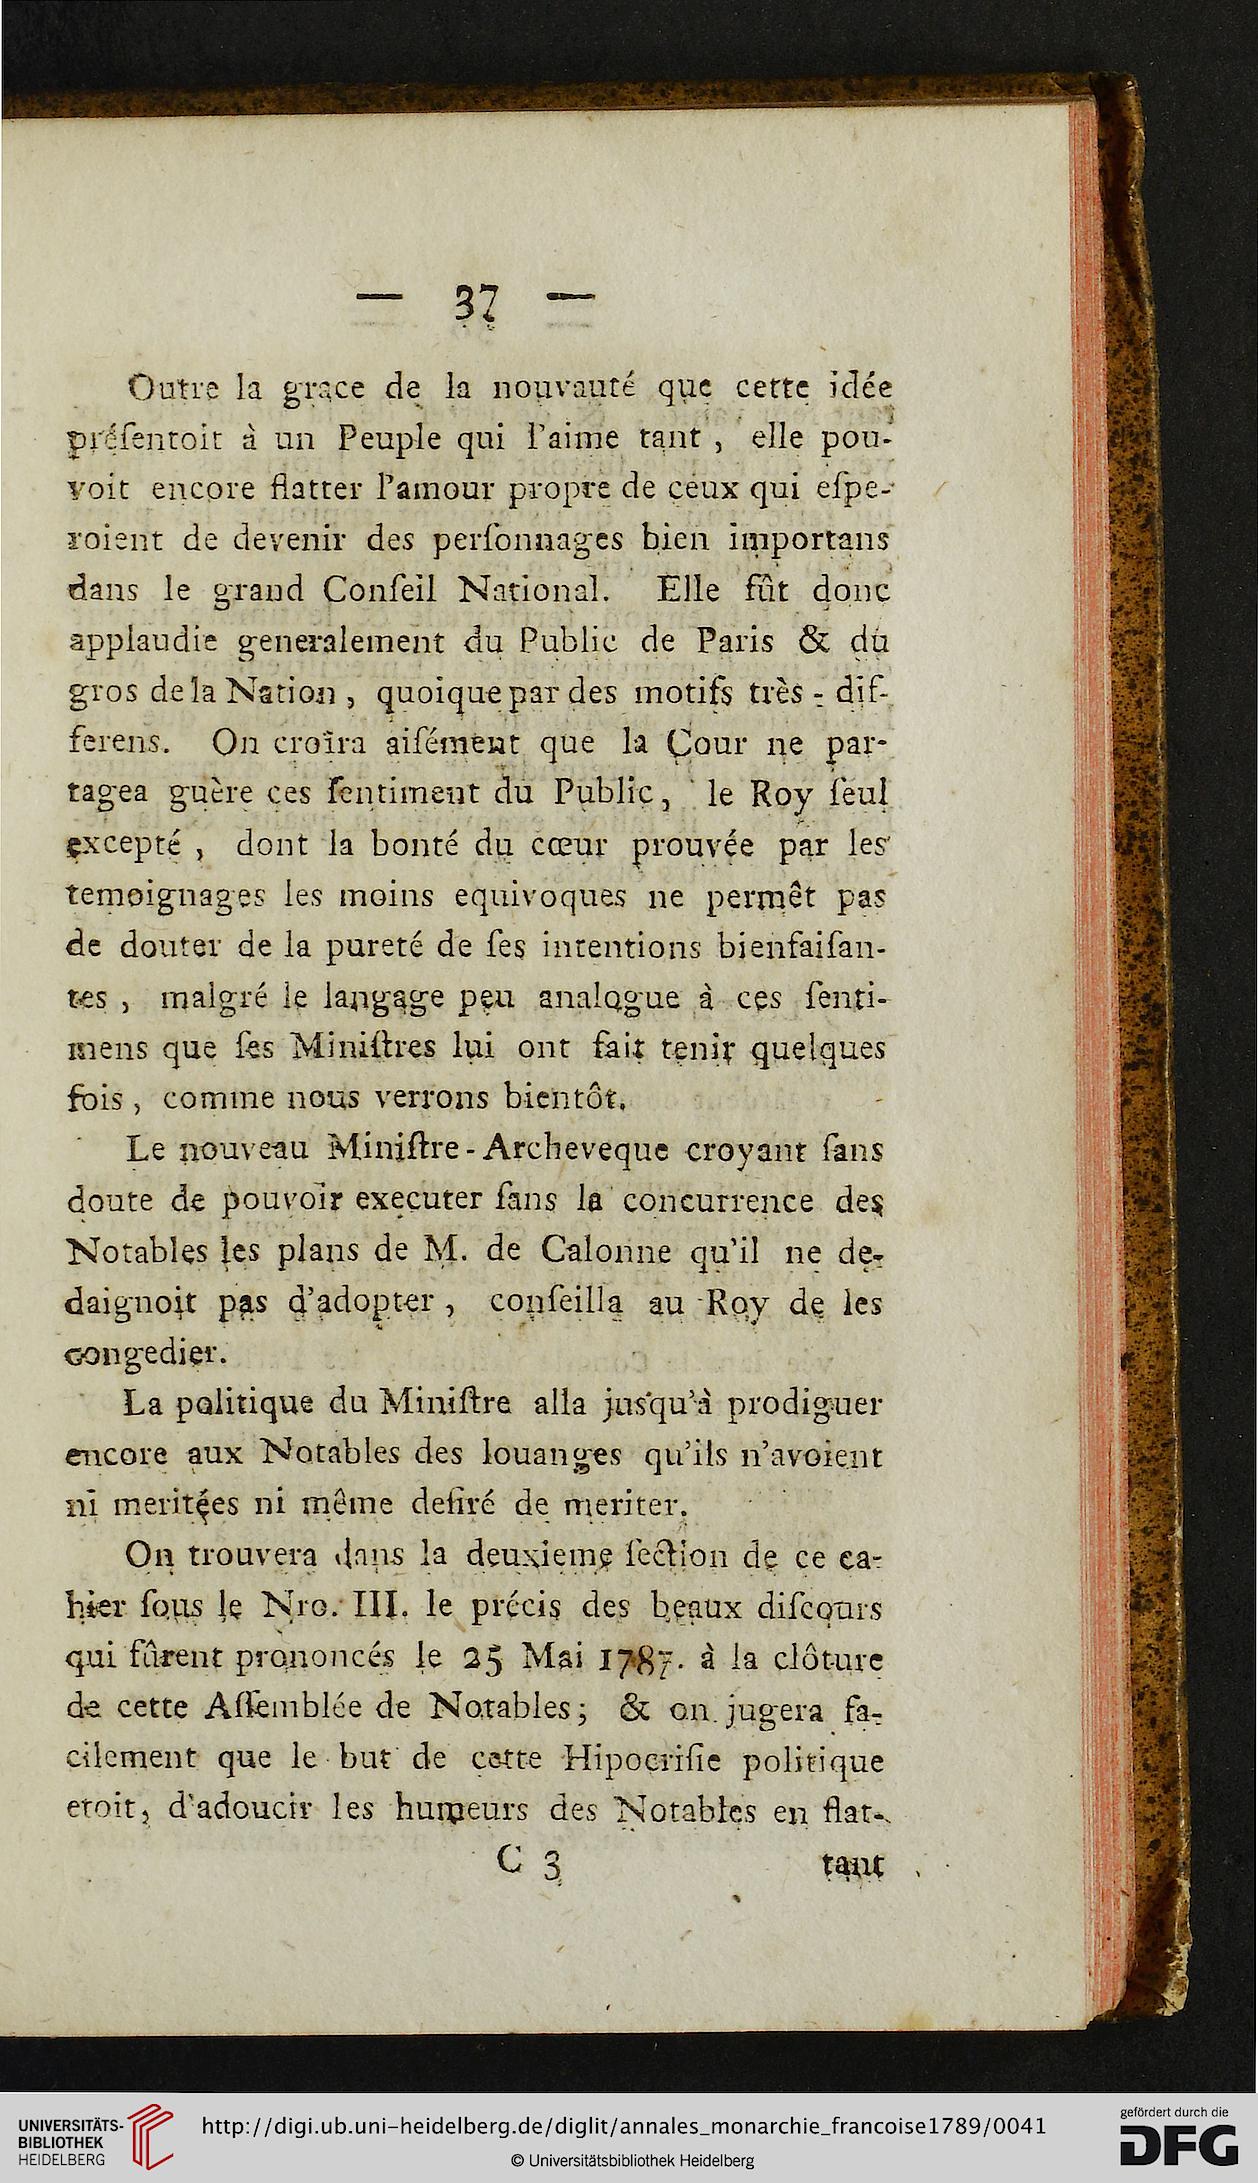 — 37 —
Outre la grace de la nouvauté que cette idée
préſentoit à un Peuple qui l'aime tant, elle pou-
voit encore flatter l'amour propre de ceux qui eſpe-
roient de devenir des perſonnages bien importans
dans le grand Conſeil National. Elle fût donc
applaudie generalement du Public de Paris & du
gros de la Nation, quoique par des motifs très-dif-
ferens. On croîra aiſément que la Cour ne par-
tagea guère ces ſentiment du Public, le Roy ſeul
excepté, dont la bonté du cœur prouvée par les
temoignages les moins equivoques ne permêt pas
de douter de la pureté de ſes intentions bienfaiſan-
tes, malgré le langage peu analogue à ces ſenti-
mens que ſes Miniſtres lui ont fait tenir quelques
fois, comme nous verrons bientôt.
Le nouveau Miniſtre-Archeveque croyant ſans
doute de pouvoir executer ſans la concurrence des
Notables les plans de M. de Calonne qu'il ne de-
daignoit pas d'adopter, conſeilla au Roy de les
congedier.
La politique du Miniſtre alla jusqu'à prodiguer
encore aux Notables des louanges qu'ils n'avoient
ni meritées ni même deſiré de meriter.
On trouvera dans la deuxieme ſection de ce ca-
hier ſous le Nro. III. le précis des beaux diſcours
qui fûrent prononcés le 25 Mai 1787. à la clôture
de cette Aſſemblée de Notables; & on jugera fa-
cilement que le but de cette Hipocriſie politique
etoit, d'adoucir les humeurs des Notables en flat-
C 3 tant
UNIVERSITÄTS-
BIBLIOTHEK
HEIDELBERG
http://digi.ub.uni-heidelberg.de/diglit/annales_monarchie_francoise1789/0041
© Universitätsbibliothek Heidelberg
gefördert durch die
DFG